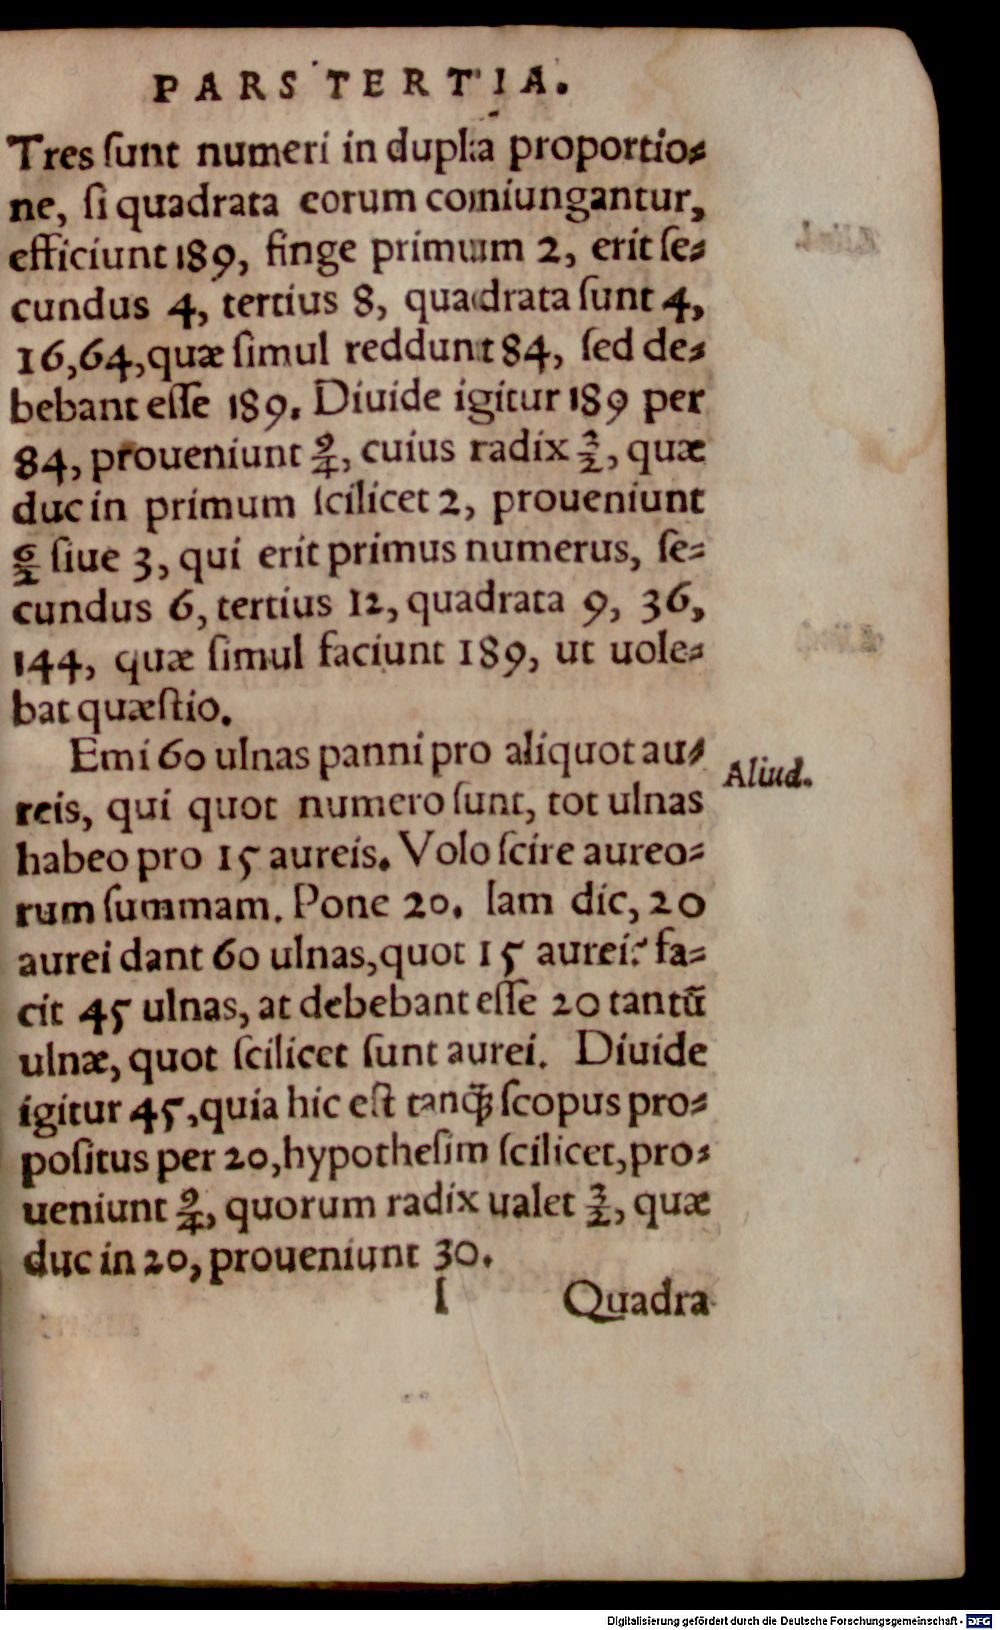 PARS TERTIA.
Tres ſunt numeri in dupla proportio⸗
ne, ſi quadrata eorum coniungantur,
efficiunt 189, finge primum 2, erit ſe⸗
cundus 4, tertius 8, quadrata ſunt 4,
16,64, quæ ſimul reddunt 84, ſed de⸗
bebant eſſe 189. Diuide igitur 189 per
84, proueniunt 9/4, cuius radix 3/2, quæ
duc in primum ſcilicet 2, proueniunt
6/2 ſiue 3, qui erit primus numerus, ſe⸗
cundus 6, tertius 12, quadrata 9, 36,
144, quæ ſimul faciunt 189, ut uole⸗
bat quæſtio.
Emi 60 ulnas panni pro aliquot au⸗
Aliud.
reis, qui quot numero ſunt, tot ulnas
habeo pro 15 aureis. Volo ſcire aureo⸗
rum ſummam. Pone 20. Iam dic, 20
aurei dant 60 ulnas, quot 15 aurei? fa⸗
cit 45 ulnas, at debebant eſſe 20 tantũ
ulnæ, quot ſcilicet ſunt aurei. Diuide
igitur 45, quia hic eſt tanq̃ ſcopus pro⸗
poſitus per 20, hypotheſim ſcilicet, pro⸗
ueniunt 9/4, quorum radix ualet 3/2, quæ
duc in 20, proueniunt 30.
I Quadra
Digitalisierung gefördert durch die Deutsche Forschungsgemeinschaft - DFG